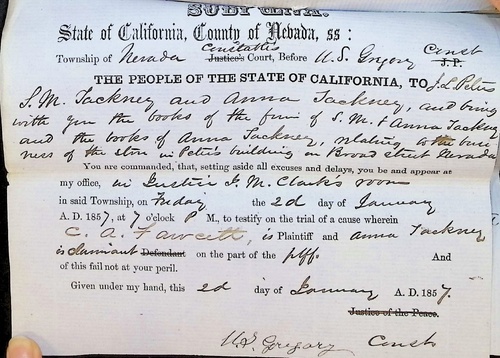 SUBPŒNA.
State of California, County of Nevada, ss:
Constables Const
Township of Nevada Justice's Court, Before U. S. Gregory J.P.
THE PEOPLE OF THE STATE OF CALIFORNIA, TO J. L. Peters
S. M. Tackney and Anna Tackney, and bring
with you the books of the firm of S. M. & Anna Tackney
and the books of Anna Tackney, relating to the busi
ness of the store in Peters building on Broad street Nevada
You are commanded, that, setting aside all excuses and delays, you be and appear at
my office, in Justice J. M. Clarks room
in said Township, on Friday the 2d day of January
A. D. 1857, at 7 o'clock P M., to testify on the trial of a cause wherein
C. A. Fawcett, is Plaintiff and Anna Tackney
is claimant Defendant on the part of the plff. And
of this fail not at your peril.
Given under my hand, this 2d day of January A. D. 1857.
Justice of the Peace.
U. S. Gregory Const